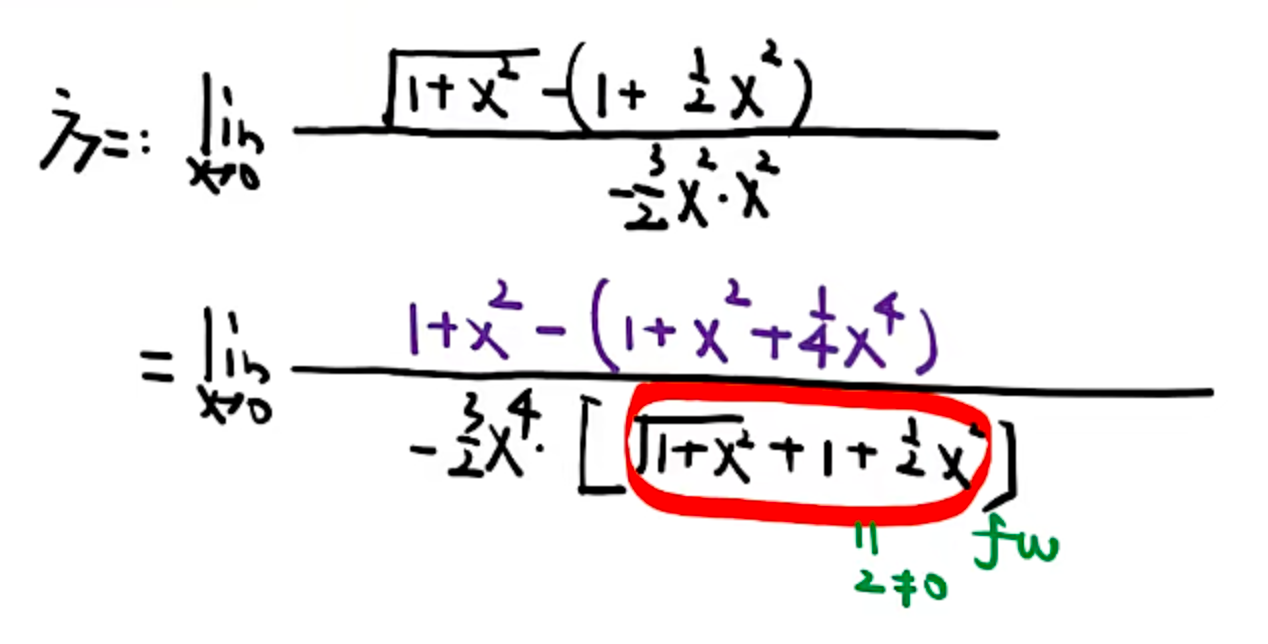 原式=: lim x→0 (√(1+x²) - (1 + ½x²)) / (-3/2 x²·x²)
= lim x→0 (1+x² - (1+x²+¼x⁴)) / (-3/2 x⁴·[√(1+x²) + 1 + ½x²])
॥ f(x)
2≠0